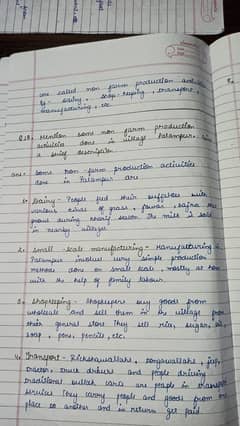 are called non farm production
Eg- dairy, shop-keeping, transport,
manufacturing, etc.
Mention some non farm production
activities done in village Palampur. in
a brief description.
ans- Some non-farm production activities
done in Palampur are
1. Dairy- People feed their buffalos with
various kinds of grass, jowar, bajra that
grows during rainy season. The milk is sold
in nearby villages.
2. Small-scale manufacturing- Manufacturing in
Palampur involve very simple production
methods done on small scale, mostly at home
with the help of family labour.
3. Shopkeeping- shopkeepers buy goods from
wholesale and sell them in the village from
their general store They sell rice, sugar, oil,
soap, pens, pencils, etc.
4. Transport- Rickshawallahs, tongawallahs, jeep,
tractor, truck drivers and people driving
traditional bullock carts are people in transport
services They carry people and goods from one
place to another and in return get paid.